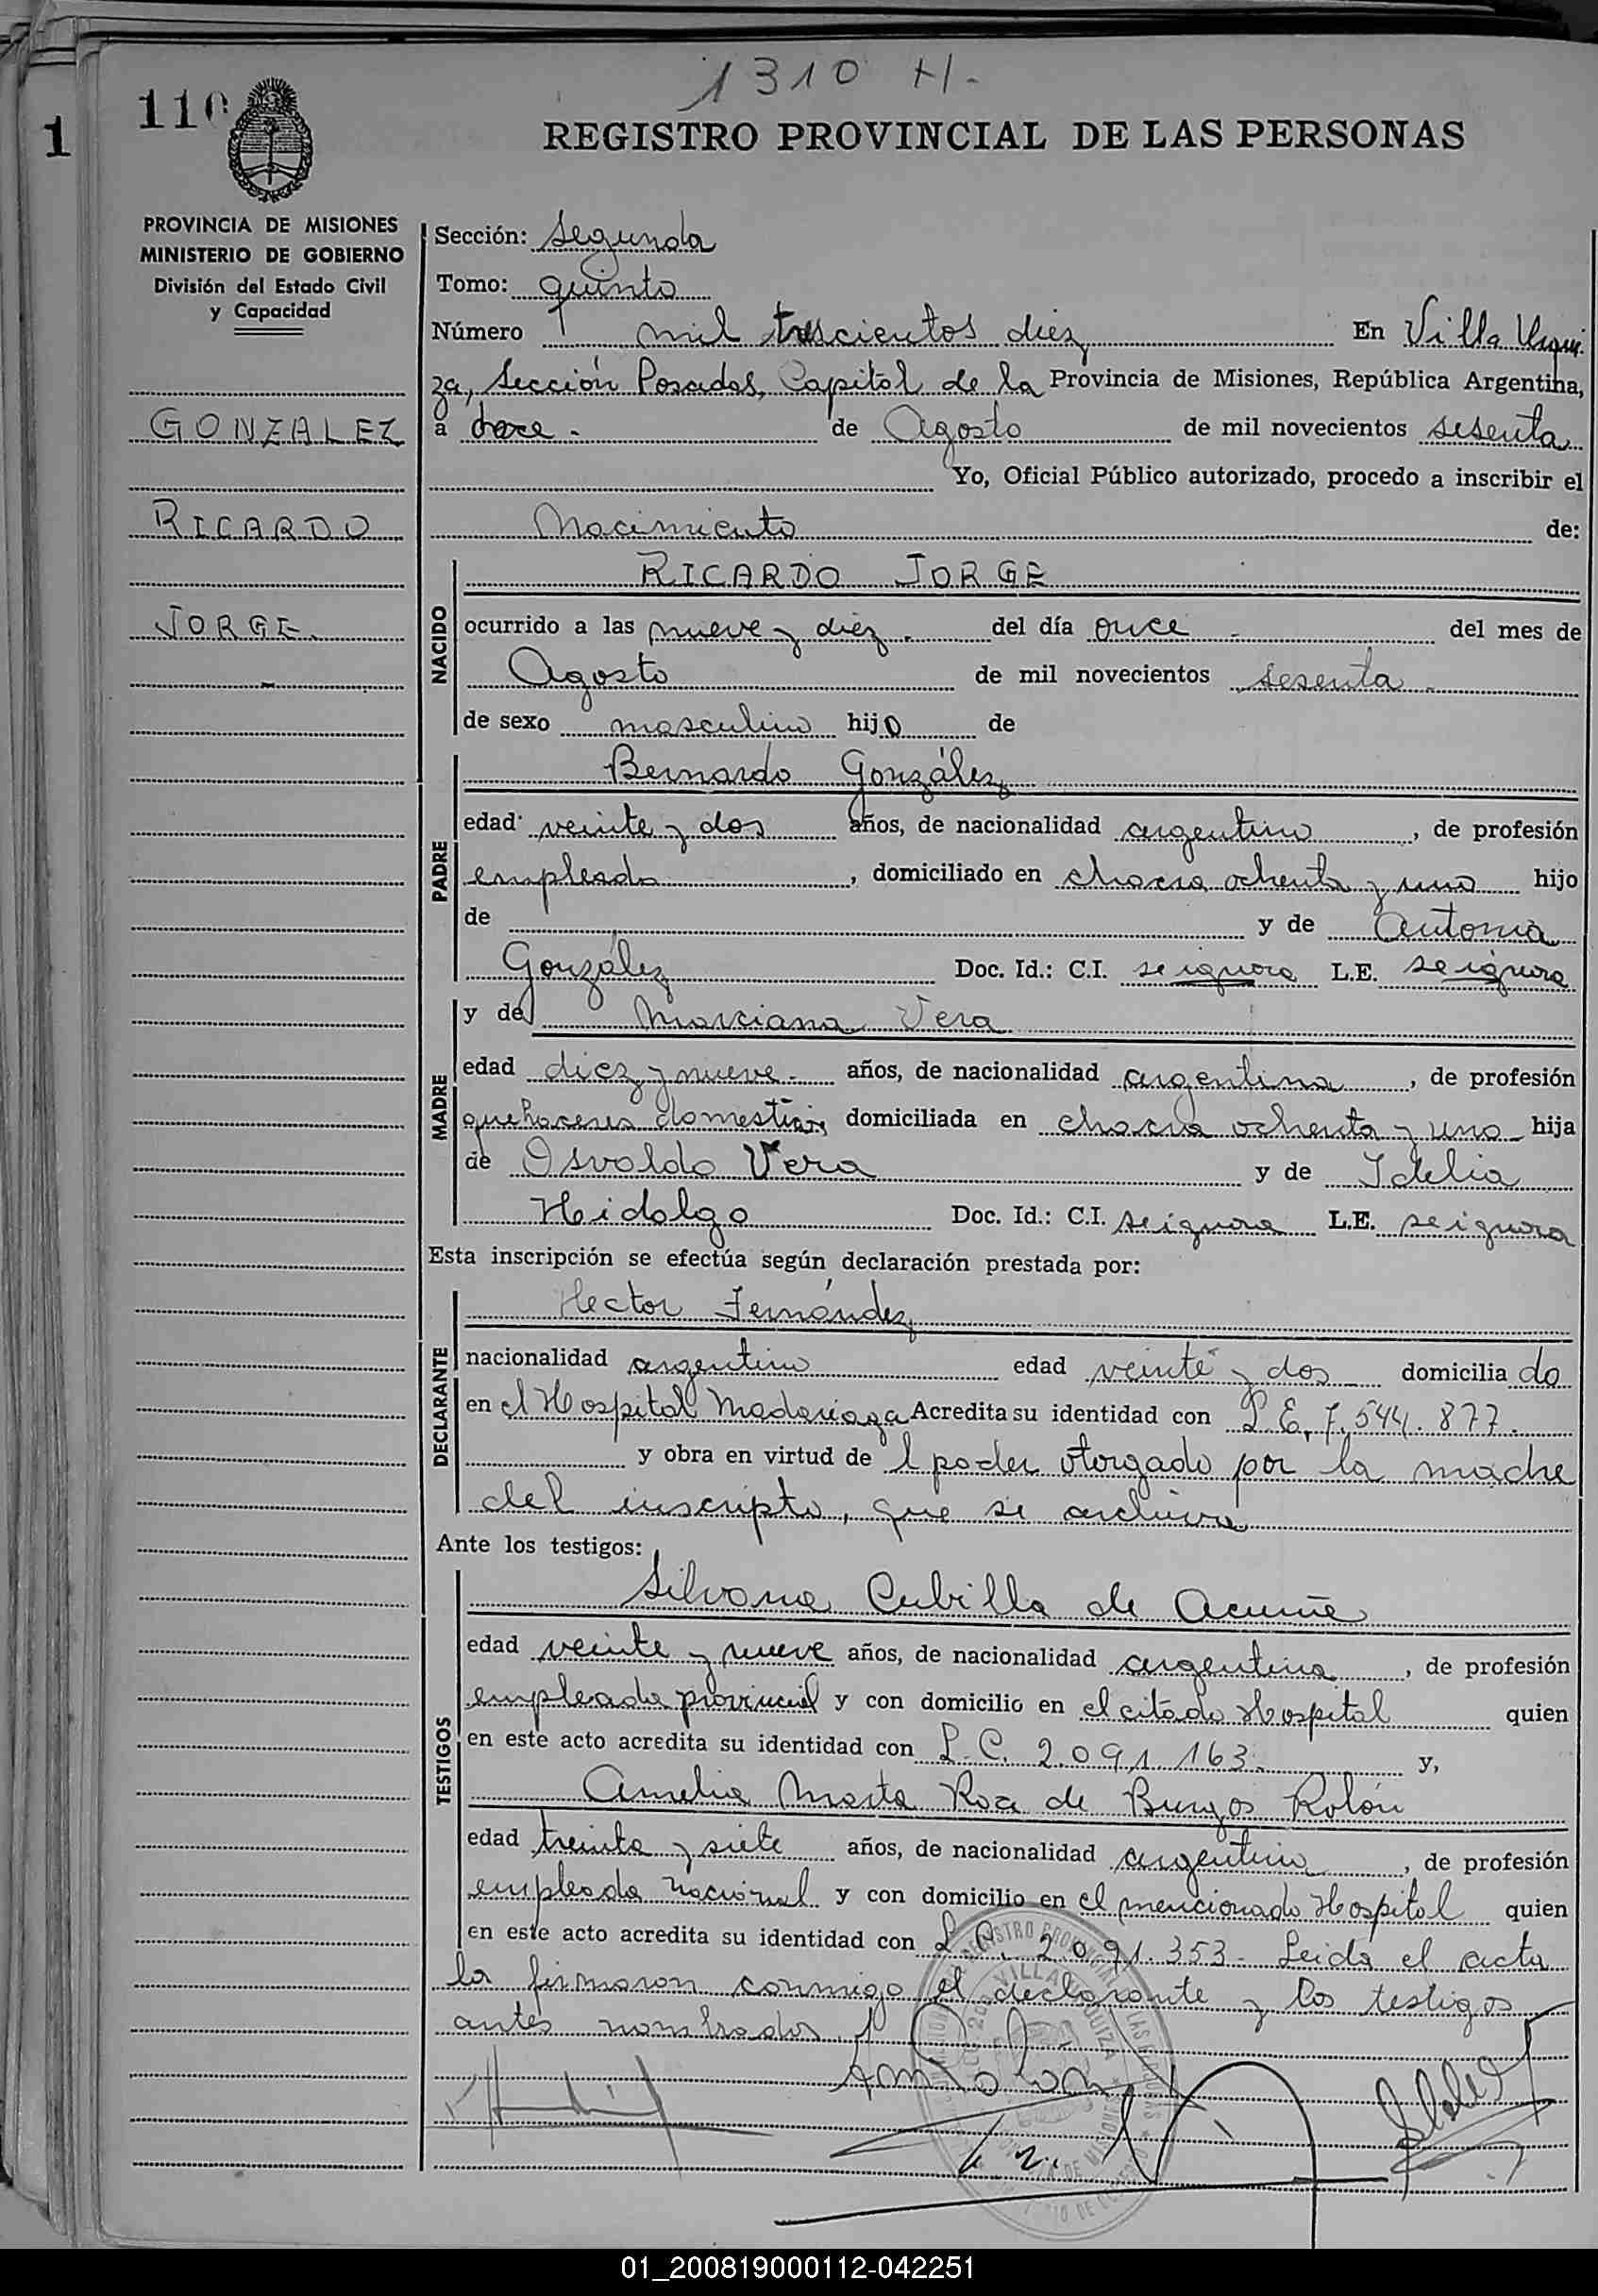 1310 H-
110
1
REGISTRO PROVINCIAL DE LAS PERSONAS
PROVINCIA DE MISIONES
MINISTERIO DE GOBIERNO
División del Estado Civil
y Capacidad
GONZALEZ
RICARDO
JORGE.
Sección: Segunda
Tomo: quinto
Número mil trescientos diez En Villa Urqui-
za, Sección Posadas, Capital de la Provincia de Misiones, República Argentina,
a doce - de Agosto de mil novecientos sesenta
Yo, Oficial Público autorizado, procedo a inscribir el
Nacimiento de:
NACIDO
RICARDO JORGE
ocurrido a las nueve y diez. del día once - del mes de
Agosto de mil novecientos sesenta -
de sexo masculino hijo de
PADRE
Bernardo González
edad veinte y dos años, de nacionalidad argentino, de profesión
empleado, domiciliado en chacra ochenta y uno hijo
de y de Antonia
González Doc. Id.: C.I. se ignora L.E. se ignora
MADRE
y de Marciana Vera
edad diez y nueve - años, de nacionalidad argentina, de profesión
quehaceres domesticos domiciliada en chacra ochenta y uno hija
de Osvaldo Vera y de Idelia
Hidalgo Doc. Id.: C.I. se ignora L.E. se ignora
Esta inscripción se efectúa según declaración prestada por:
DECLARANTE
Hector Fernández
nacionalidad argentino edad veinte y dos domicilia do
en el Hospital Madariaga Acredita su identidad con L.E. 7.544.877.
y obra en virtud de l poder otorgado por la madre
del inscripto, que se archiva
Ante los testigos:
TESTIGOS
Silvana Cubilla de Acuña
edad veinte y nueve años, de nacionalidad argentina, de profesión
empleada provincial y con domicilio en el citado Hospital quien
en este acto acredita su identidad con L.C. 2.091.163. y,
Amelia Marta Roa de Burgos Rolón
edad treinta y siete años, de nacionalidad argentina, de profesión
empleada nacional y con domicilio en el mencionado Hospital quien
en este acto acredita su identidad con L.C. 2.091.353- Leida el acta
la firmaron conmigo el declarante y los testigos
antes nombrados
01_200819000112-042251